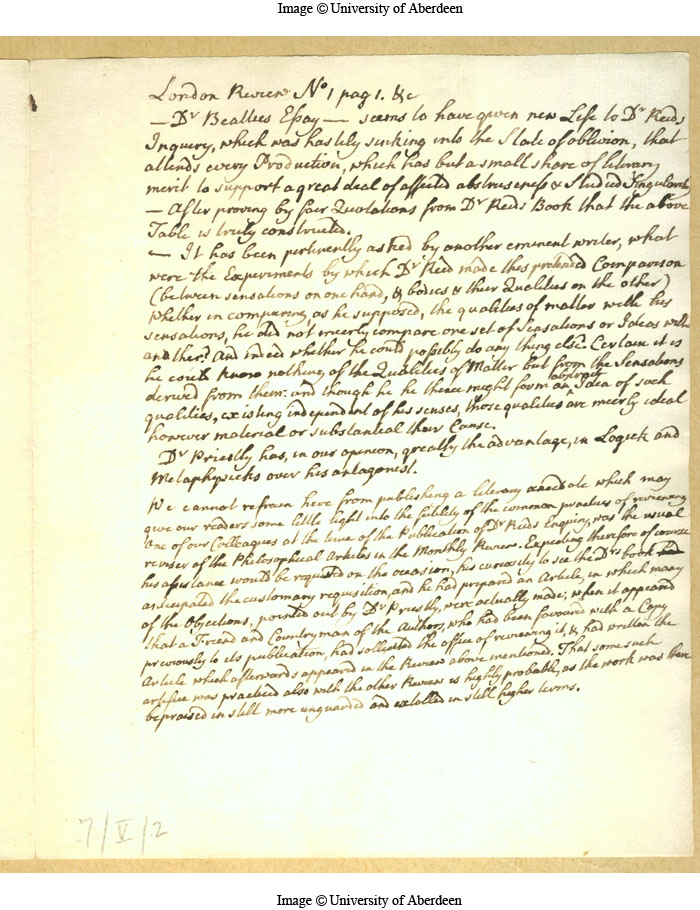 Image © University of Aberdeen
London Review No 1 pag 1. &c
— Dr Beatties Essay — seems to have given new Life to Dr Reids
Inquery, which was hastily sinking into the State of oblivion, that
attends every Production, which has but a small share of literary
merit to support a great deal of affected abstruseness & Studied Singularity
— After proving by fair Quotations from Dr Reids Book that the above
Table is truly constructed.
— It has been pertinently asked by another eminent writer, what
were the Experiments by which Dr Reid made this pretended Comparison
(between sensations on one hand, & bodies & their Qualities on the other)
Whether in comparing, as he supposed, the qualities of matter with his
sensations, he did not meerly compare one set of Sensations or Ideas with
another? And indeed whether he could possibly do any thing else. Certain it is
he could know nothing of the Qualities of Matter but from the Sensations
derived from them: and though he he thence might form an abstract Idea of such
qualities, existing independent of his senses, those qualities are meerly ideal
however material or substantial their Cause.
Dr Priestly has, in our opinion, greatly the advantage, in Logick and
Metaphysicks over his antagonist.
We cannot refrain here from publishing a literary anecdote which may
give our readers some little light into the futility of the common practices of reviewing
One of our Colleagues at the time of the Publication of Dr Reids Enquiry, was the usual
reviser of the Philosophical Articles in the Monthly Review. Expecting therefore of course
his assistance would be requested on the occasion, his curiosity to see the Drs book had
anticipated the customary requisition, and he had prepared an Article, in which many
of the Objections, pointed out by Dr Priestly, were actually made; when it appeared
that a Friend and Countryman of the Authors, who had been favoured with a Copy
previously to its publication, had sollicited the office of reviewing it, & had written the
Article which afterwards appeared in the Review above mentioned. That some such
artifice was practiced also with the other Review is highly probable, as the work was there
bepraised in still more unguarded and extolled in still higher terms.
7/V/2
Image © University of Aberdeen